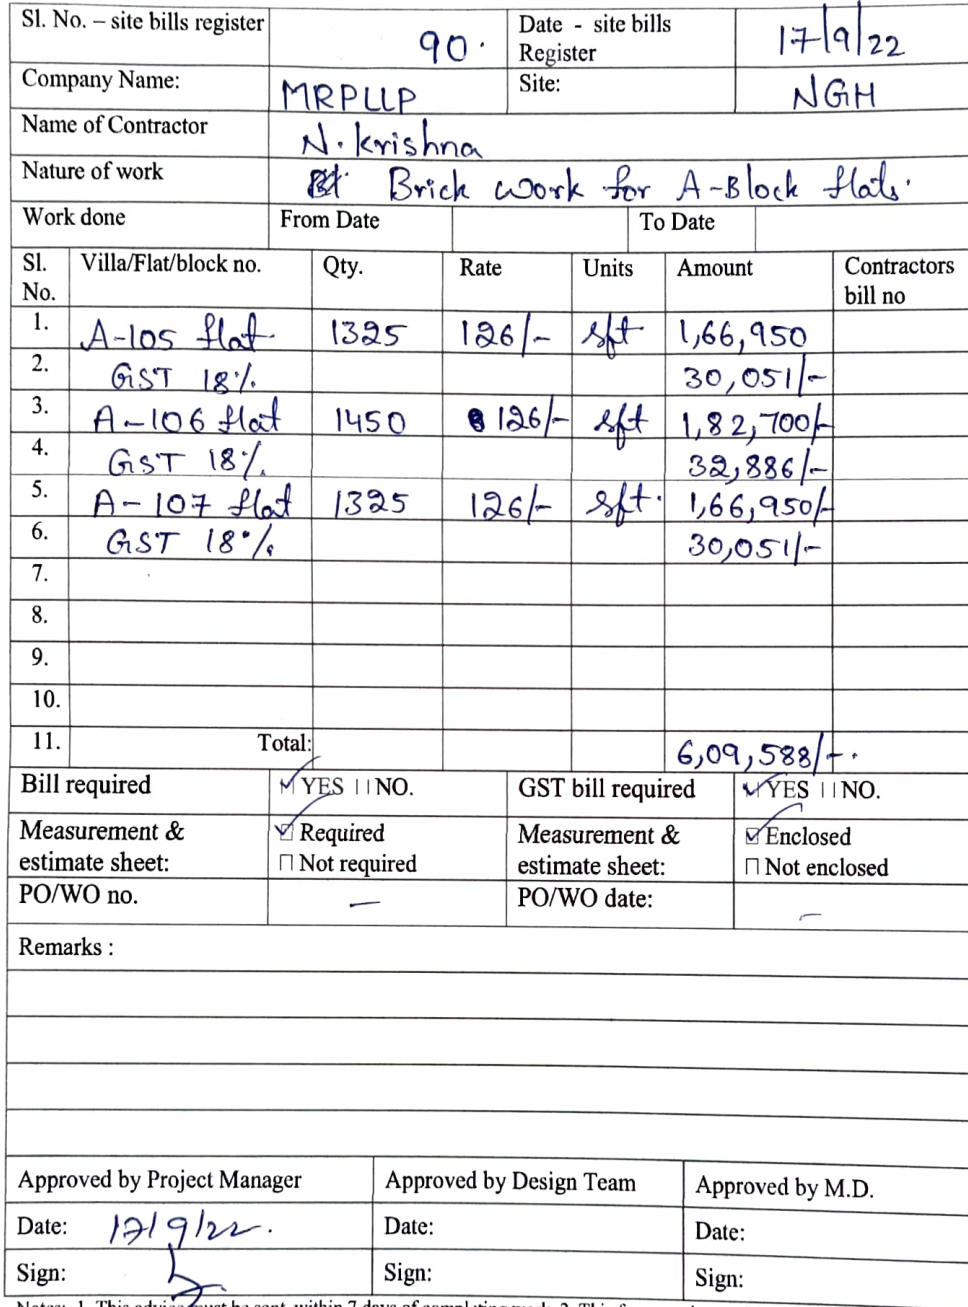 Sl. No. – site bills register 90. Date - site bills Register 17/9/22
Company Name: MRPLLP Site: NGH
Name of Contractor N. Krishna
Nature of work Brick work for A-Block flats.
Work done From Date To Date
Sl. No. Villa/Flat/block no. Qty. Rate Units Amount Contractors bill no
1. A-105 flat 1325 126/- sft 1,66,950
2. GST 18% 30,051/-
3. A-106 flat 1450 126/- sft 1,82,700/-
4. GST 18% 32,886/-
5. A-107 flat 1325 126/- sft. 1,66,950/-
6. GST 18% 30,051/-
7.
8.
9.
10.
11. Total: 6,09,588/-.
Bill required YES NO. GST bill required YES NO.
Measurement & estimate sheet: Required Not required Measurement & estimate sheet: Enclosed Not enclosed
PO/WO no. – PO/WO date: –
Remarks :
Approved by Project Manager Approved by Design Team Approved by M.D.
Date: 17/9/22. Date: Date:
Sign: Sign: Sign: